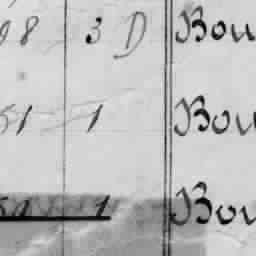 98 3 D Bou
51 1 Bou
51 1 Bou